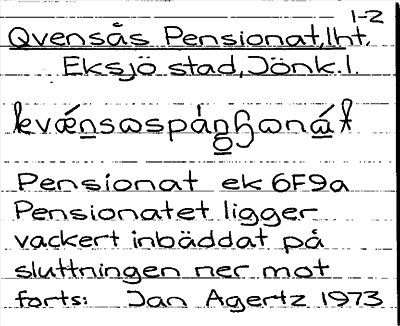 1-2
Qvensås Pensionat, lht,
Eksjö stad, Jönk. l.
Pensionat ek 6F9a
Pensionatet ligger
vackert inbäddat på
sluttningen ner mot
forts: Jan Agertz 1973